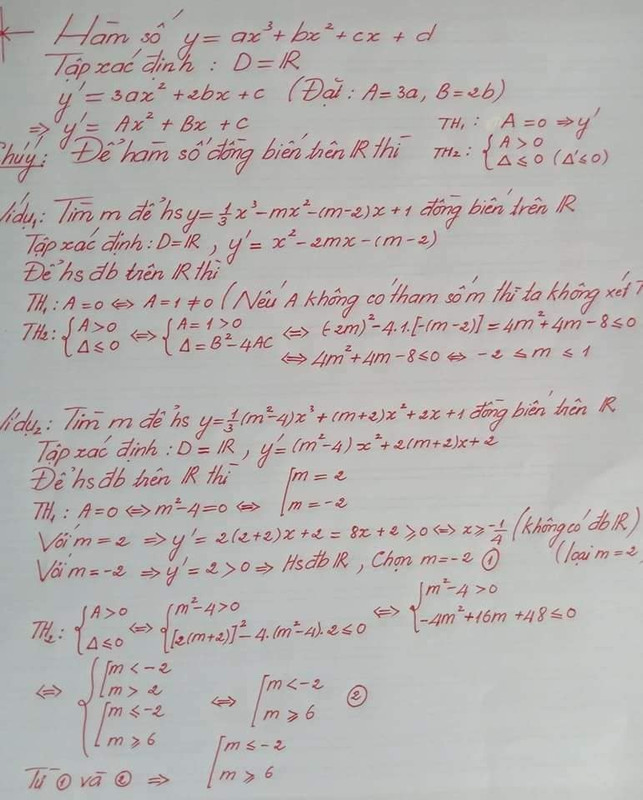 Hàm số y = ax³ + bx² + cx + d
Tập xác định : D = IR
y' = 3ax² + 2bx + c (Đặt : A = 3a, B = 2b)
⇒ y' = Ax² + Bx + c TH₁ : A = 0 ⇒ y'
hú ý : Để hàm số đồng biến trên IR thì TH₂ : { A > 0
Δ ≤ 0 (Δ' ≤ 0)
Ví dụ₁ : Tìm m để hs y = 1/3 x³ - mx² - (m-2)x + 1 đồng biến trên IR
Tập xác định : D = IR , y' = x² - 2mx - (m-2)
Để hs đb trên IR thì
TH₁ : A = 0 ⇔ A = 1 ≠ 0 (Nếu A không có tham số m thì ta không xét T
TH₂ : { A > 0 ⇔ { A = 1 > 0 ⇔ (-2m)² - 4.1.[-(m-2)] = 4m² + 4m - 8 ≤ 0
Δ ≤ 0 Δ = B² - 4AC
⇔ 4m² + 4m - 8 ≤ 0 ⇔ -2 ≤ m ≤ 1
Ví dụ₂ : Tìm m để hs y = 1/3 (m²-4)x³ + (m+2)x² + 2x + 1 đồng biến trên IR
Tập xác định : D = IR , y' = (m²-4)x² + 2(m+2)x + 2
Để hs đb trên IR thì
TH₁ : A = 0 ⇔ m² - 4 = 0 ⇔ [ m = 2
m = -2
Với m = 2 ⇒ y' = 2(2+2)x + 2 = 8x + 2 ≥ 0 ⇔ x ≥ -1/4 (không có đb IR)
(loại m = 2
Với m = -2 ⇒ y' = 2 > 0 ⇒ Hs đb IR , Chọn m = -2 ①
TH₂ : { A > 0 ⇔ { m² - 4 > 0 ⇔ { m² - 4 > 0
Δ ≤ 0 [2(m+2)]² - 4.(m²-4).2 ≤ 0 -4m² + 16m + 48 ≤ 0
⇔ { [ m < -2
m > 2
[ m ≤ -2
m ≥ 6
⇔ [ m < -2
m ≥ 6 ②
Từ ① và ② ⇒ [ m ≤ -2
m ≥ 6